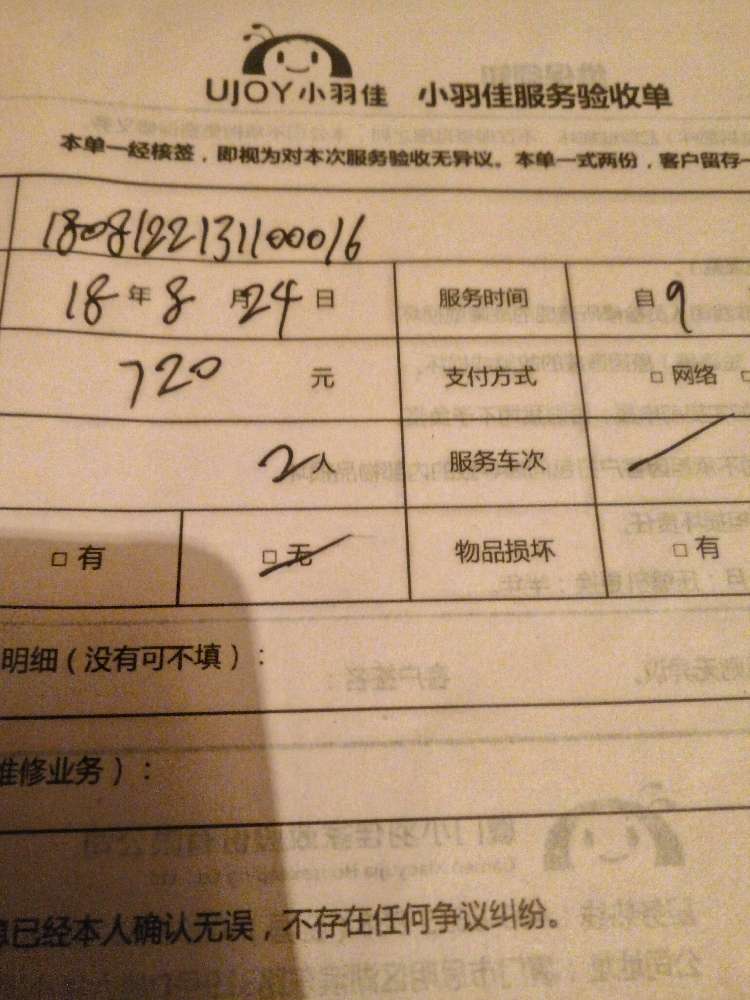 UJOY小羽佳 小羽佳服务验收单
本单一经核签，即视为对本次服务验收无异议。本单一式两份，客户留存一
1808122131100016
18年8月24日 服务时间 自9
720元 支付方式 □ 网络 □
2人 服务车次
□ 有 □ 无 物品损坏 □ 有
明细（没有可不填）：
维修业务）：
已经本人确认无误，不存在任何争议纠纷。